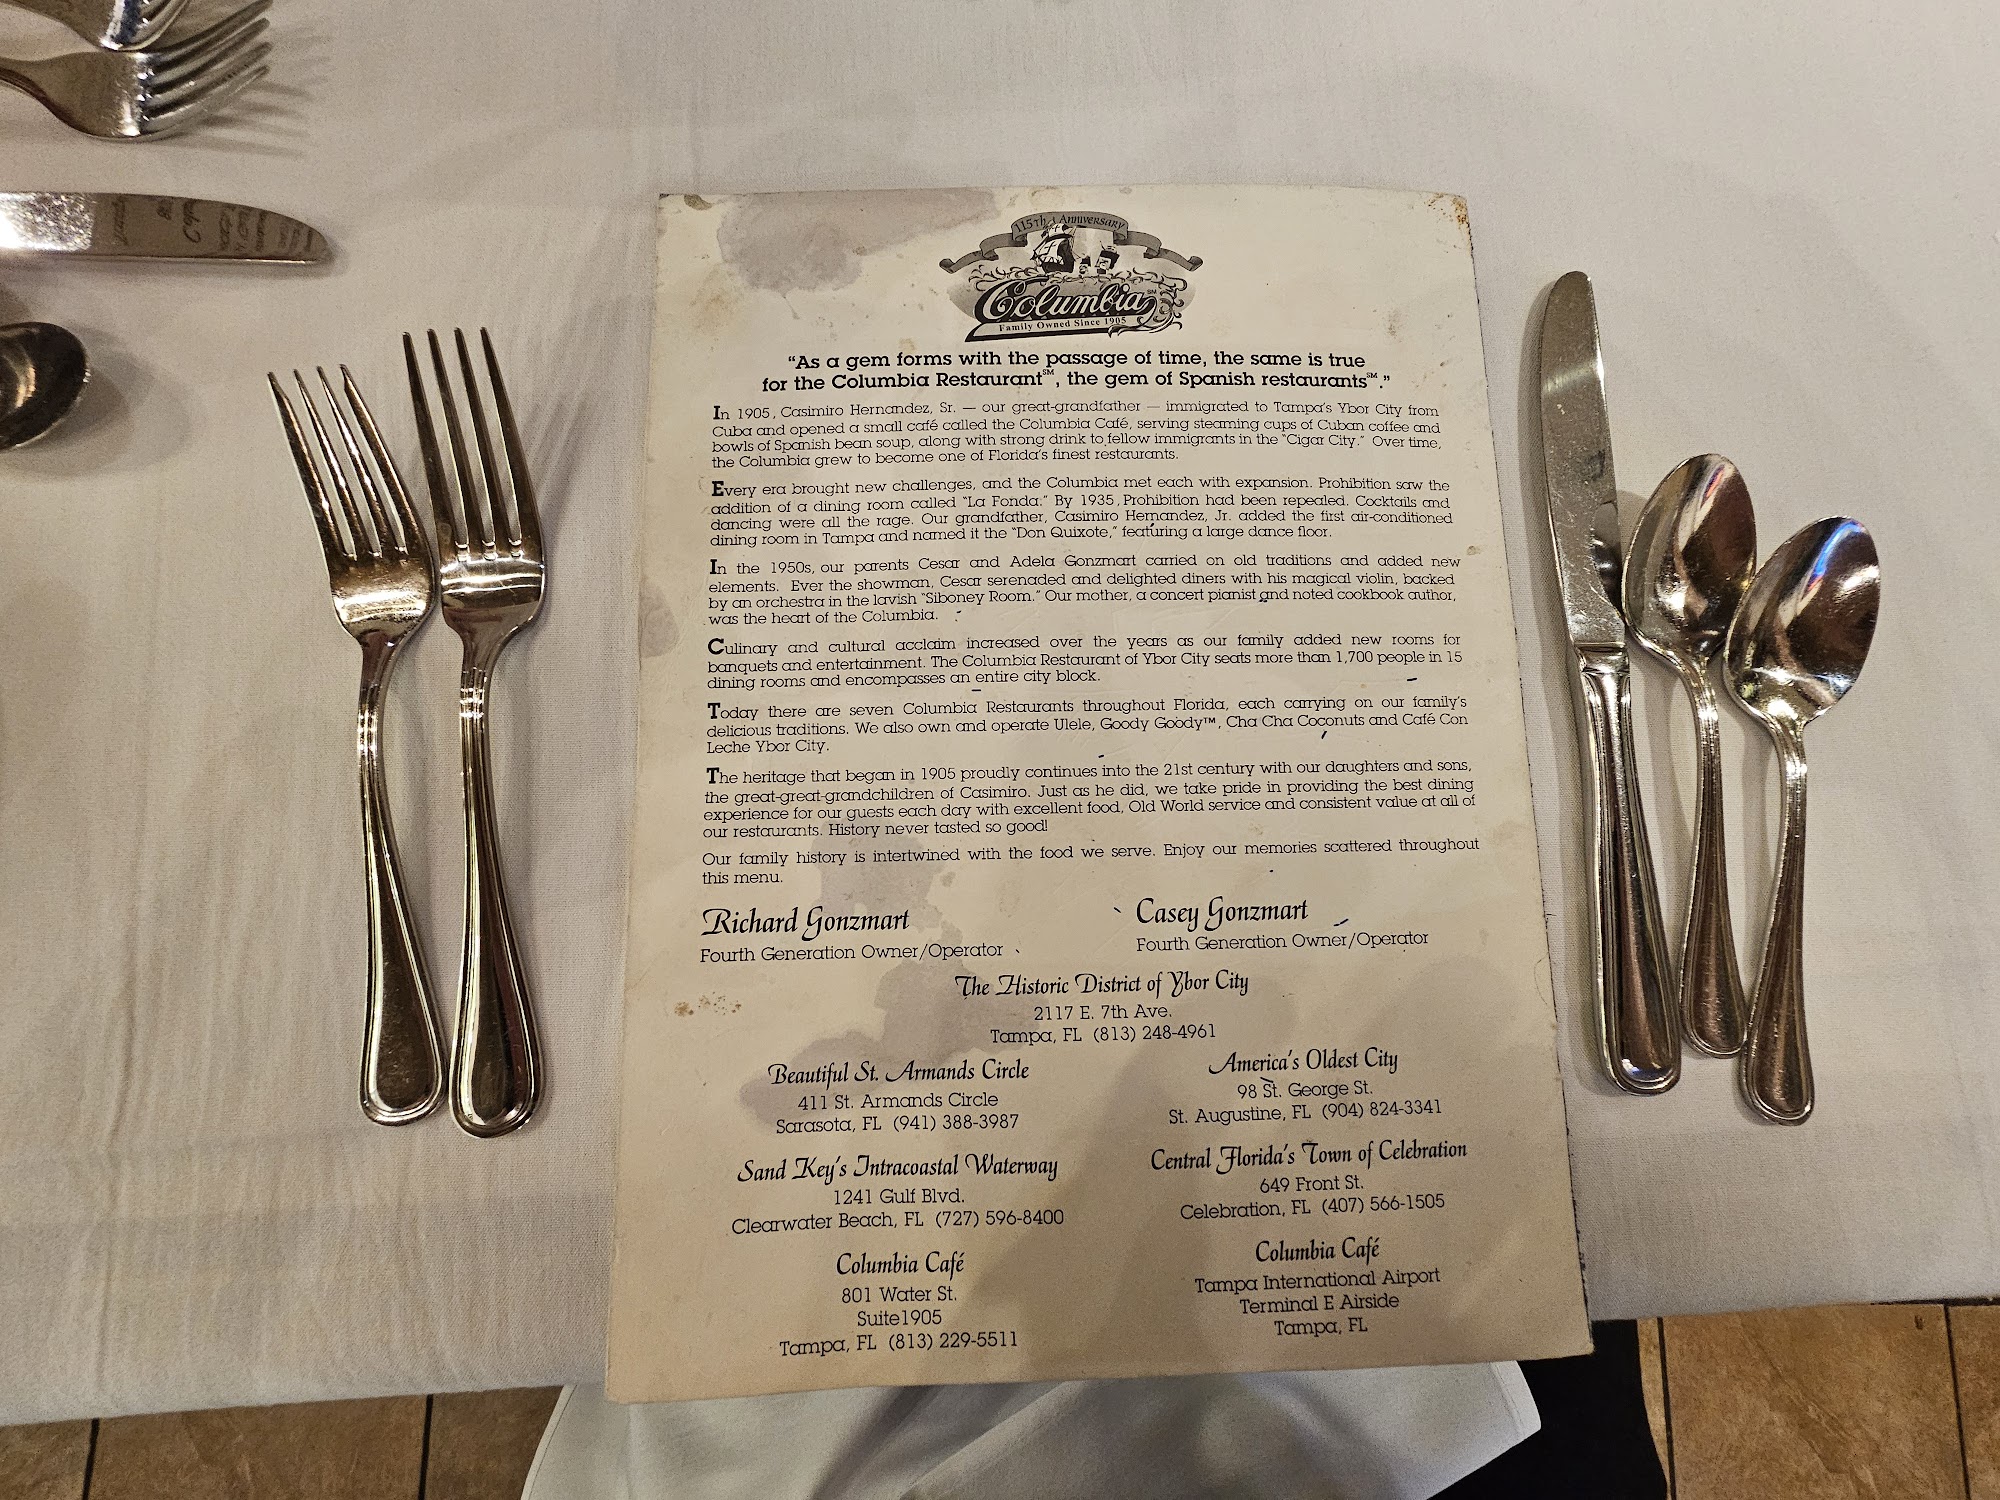 115th Anniversary
Columbia℠
Family Owned Since 1905
“As a gem forms with the passage of time, the same is true
for the Columbia Restaurant℠, the gem of Spanish restaurants℠.”
In 1905, Casimiro Hernandez, Sr. — our great-grandfather — immigrated to Tampa's Ybor City from
Cuba and opened a small café called the Columbia Café, serving steaming cups of Cuban coffee and
bowls of Spanish bean soup, along with strong drink to fellow immigrants in the “Cigar City.” Over time,
the Columbia grew to become one of Florida's finest restaurants.
Every era brought new challenges, and the Columbia met each with expansion. Prohibition saw the
addition of a dining room called “La Fonda.” By 1935, Prohibition had been repealed. Cocktails and
dancing were all the rage. Our grandfather, Casimiro Hernandez, Jr. added the first air-conditioned
dining room in Tampa and named it the “Don Quixote,” featuring a large dance floor.
In the 1950s, our parents Cesar and Adela Gonzmart carried on old traditions and added new
elements. Ever the showman, Cesar serenaded and delighted diners with his magical violin, backed
by an orchestra in the lavish “Siboney Room.” Our mother, a concert pianist and noted cookbook author,
was the heart of the Columbia.
Culinary and cultural acclaim increased over the years as our family added new rooms for
banquets and entertainment. The Columbia Restaurant of Ybor City seats more than 1,700 people in 15
dining rooms and encompasses an entire city block.
Today there are seven Columbia Restaurants throughout Florida, each carrying on our family's
delicious traditions. We also own and operate Ulele, Goody Goody™, Cha Cha Coconuts and Café Con
Leche Ybor City.
The heritage that began in 1905 proudly continues into the 21st century with our daughters and sons,
the great-great-grandchildren of Casimiro. Just as he did, we take pride in providing the best dining
experience for our guests each day with excellent food, Old World service and consistent value at all of
our restaurants. History never tasted so good!
Our family history is intertwined with the food we serve. Enjoy our memories scattered throughout
this menu.
Richard Gonzmart
Fourth Generation Owner/Operator
Casey Gonzmart
Fourth Generation Owner/Operator
The Historic District of Ybor City
2117 E. 7th Ave.
Tampa, FL (813) 248-4961
Beautiful St. Armands Circle
411 St. Armands Circle
Sarasota, FL (941) 388-3987
America's Oldest City
98 St. George St.
St. Augustine, FL (904) 824-3341
Sand Key's Intracoastal Waterway
1241 Gulf Blvd.
Clearwater Beach, FL (727) 596-8400
Central Florida's Town of Celebration
649 Front St.
Celebration, FL (407) 566-1505
Columbia Café
801 Water St.
Suite1905
Tampa, FL (813) 229-5511
Columbia Café
Tampa International Airport
Terminal E Airside
Tampa, FL